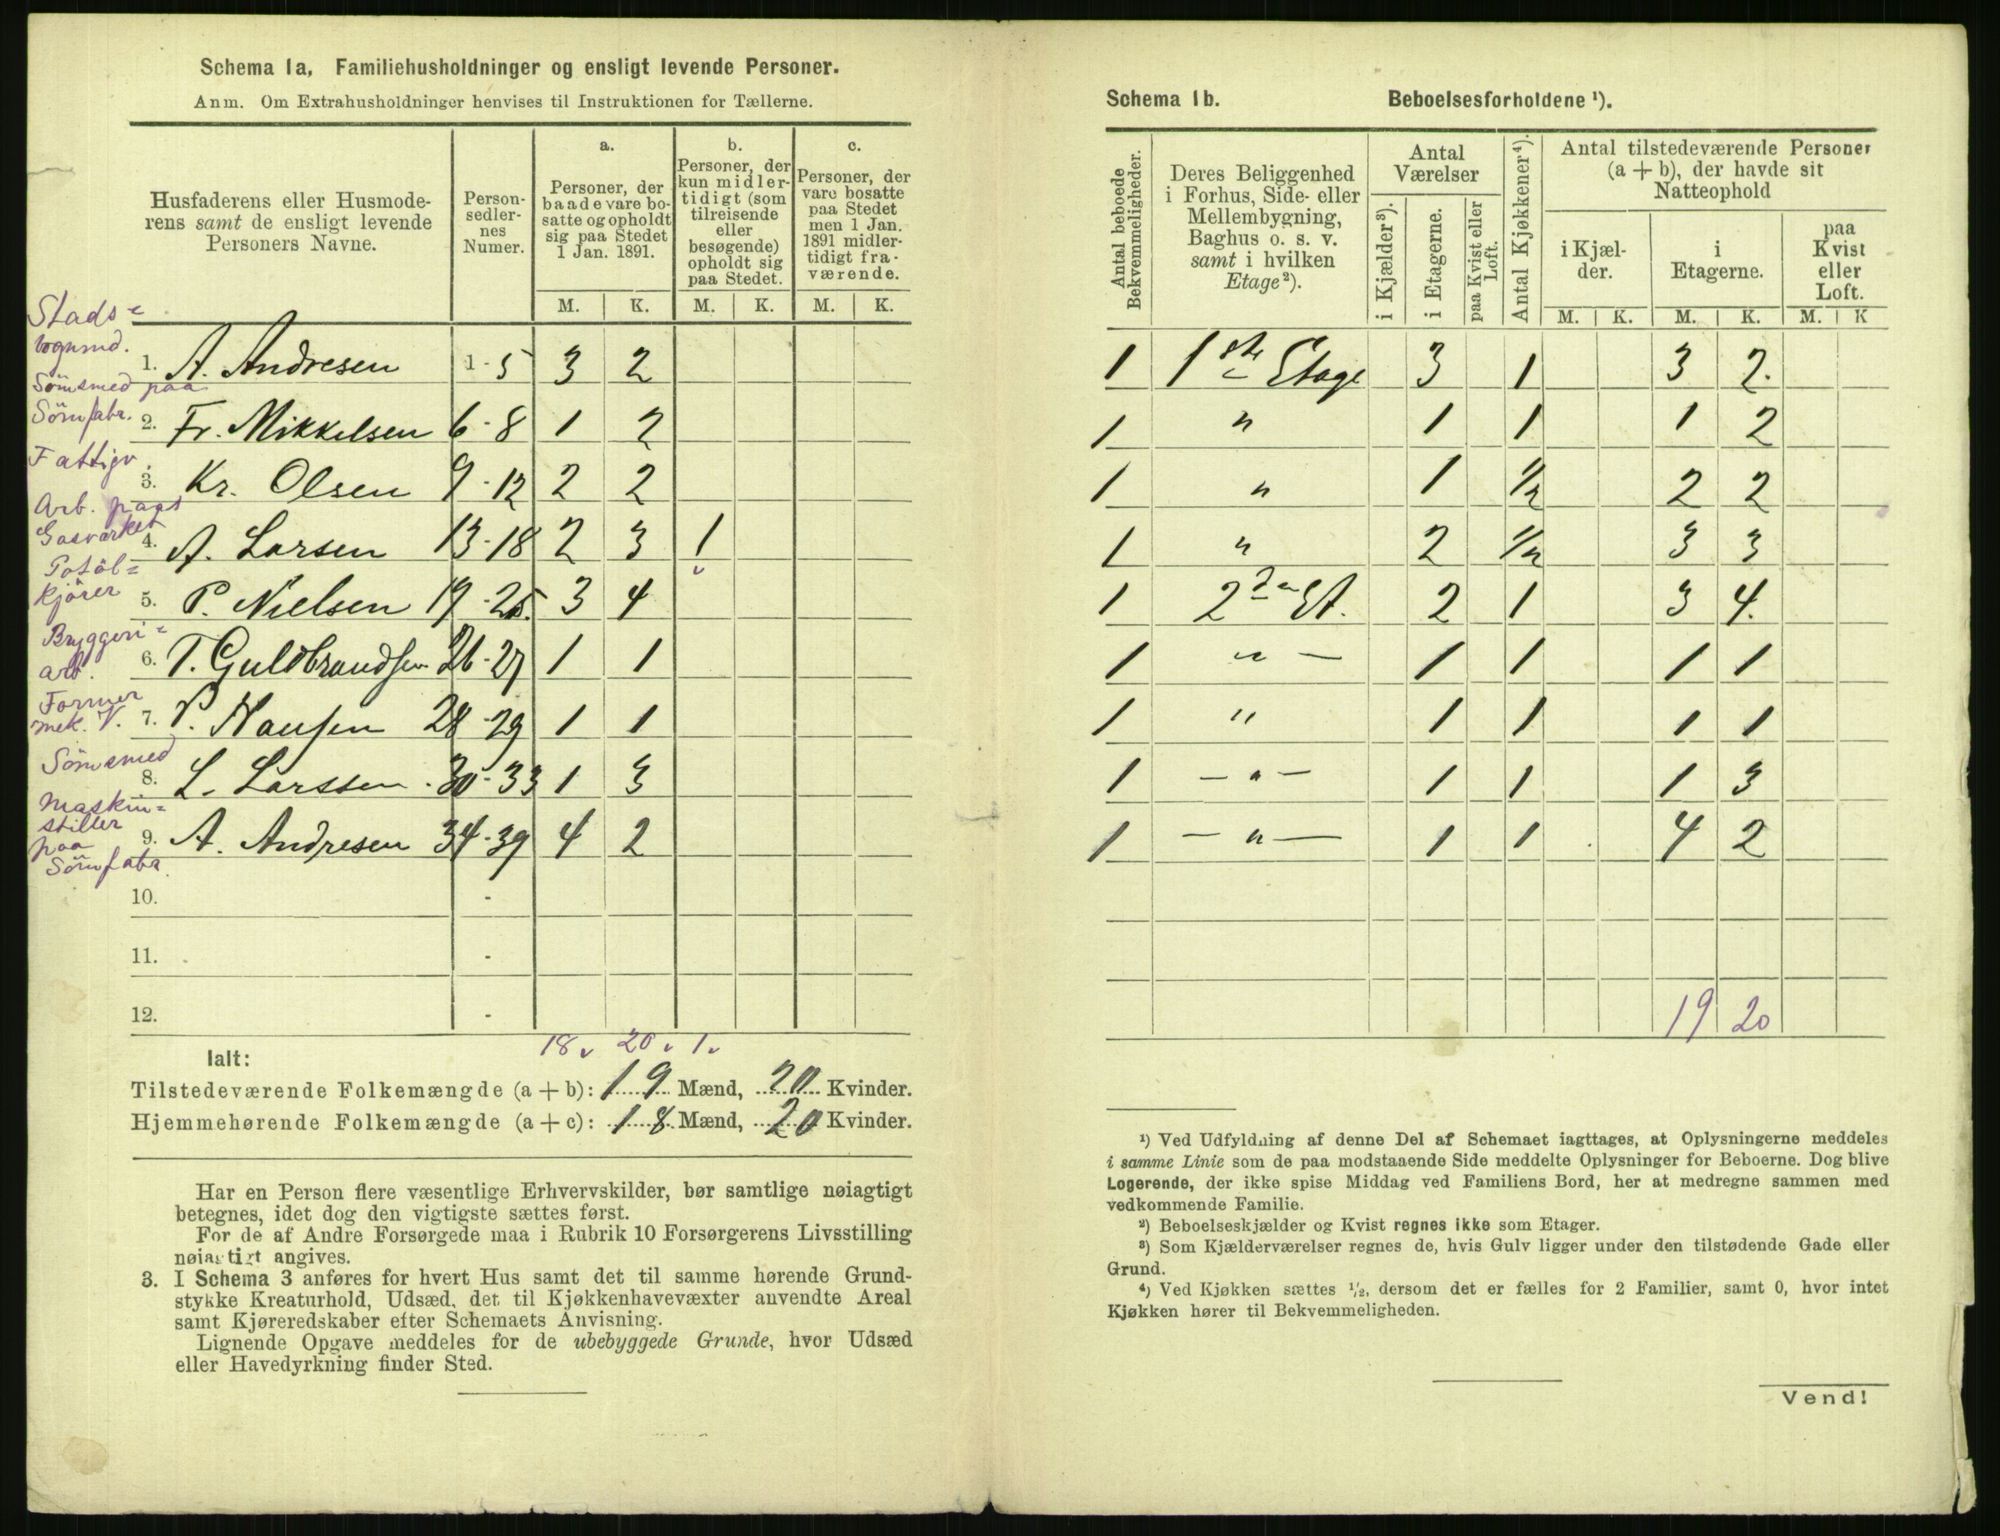 Schema 1a, Familiehusholdninger og ensligt levende Personer.
Anm. Om Extrahusholdninger henvises til Instruktionen for Tællerne.
Husfaderens eller Husmode-
rens samt de ensligt levende
Personers Navne.
Person-
sedler-
nes
Numer.
a.
Personer, der
baade vare bo-
satte og opholdt
sig paa Stedet
1 Jan. 1891.
b.
Personer, der
kun midler-
tidigt (som
tilreisende
eller
besøgende)
opholdt sig
paa Stedet.
c.
Personer, der
vare bosatte
paa Stedet
men 1 Jan.
1891 midler-
tidigt fra-
værende.
M. K. M. K. M. K.
Stads=
vognmd.
1. A. Andresen 1-5 3 2
Sömsmed paa
Sömfabr.
2. Fr. Mikkelsen 6-8 1 2
Fattigv.
3. Kr. Olsen 9-12 2 2
Arb. paa
Gasværket
4. A. Larsen 13-18 2 3 1
kjörer
5. P. Nielsen 19-25 3 4
Bryggeri=
arb.
6. T. Guldbrandsen 26-27 1 1
Former
mek. V.
7. P. Hansen 28-29 1 1
Sömsmed
8. L. Larssen 30-33 1 3
Maskin=
stiller
paa
Sömfabr.
9. A. Andresen 34-39 4 2
10. -
11. -
12. -
18. 20. 1.
Ialt:
Tilstedeværende Folkemængde (a + b): 19 Mænd, 20 Kvinder.
Hjemmehørende Folkemængde (a + c): 18 Mænd, 20 Kvinder.
Har en Person flere væsentlige Erhvervskilder, bør samtlige nøiagtigt
betegnes, idet dog den vigtigste sættes først.
For de af Andre Forsørgede maa i Rubrik 10 Forsørgerens Livsstilling
nøiagtigt angives.
3. I Schema 3 anføres for hvert Hus samt det til samme hørende Grund-
stykke Kreaturhold, Udsæd, det til Kjøkkenhavevæxter anvendte Areal
samt Kjøreredskaber efter Schemaets Anvisning.
Lignende Opgave meddeles for de ubebyggede Grunde, hvor Udsæd
eller Havedyrkning finder Sted.
Schema 1b. Beboelsesforholdene ¹).
Antal beboede
Bekvemmeligheder.
Deres Beliggenhed
i Forhus, Side- eller
Mellembygning,
Baghus o. s. v.
samt i hvilken
Etage ²).
Antal
Værelser
i Kjælder ³).
i Etagerne.
paa Kvist eller
Loft.
Antal Kjøkkener ⁴).
Antal tilstedeværende Personer
(a + b), der havde sit
Natteophold
i Kjæl-
der.
i
Etagerne.
paa
Kvist
eller
Loft.
M. K. M. K. M. K
1 1ste Etage 3 1 3 2.
1 " 1 1 1 2
1 " 1 1/2 2 2
1 " 2 1/2 3 3
1 2den Et. 2 1 3 4.
1 " — 1 1 1 1
1 " 1 1 1 1
1 — " — 1 1 1 3
1 — " — 1 1 4 2
19 20
¹) Ved Udfyldning af denne Del af Schemaet iagttages, at Oplysningerne meddeles
i samme Linie som de paa modstaaende Side meddelte Oplysninger for Beboerne. Dog blive
Logerende, der ikke spise Middag ved Familiens Bord, her at medregne sammen med
vedkommende Familie.
²) Beboelseskjælder og Kvist regnes ikke som Etager.
³) Som Kjælderværelser regnes de, hvis Gulv ligger under den tilstødende Gade eller
Grund.
⁴) Ved Kjøkken sættes ½, dersom det er fælles for 2 Familier, samt 0, hvor intet
Kjøkken hører til Bekvemmeligheden.
Vend!